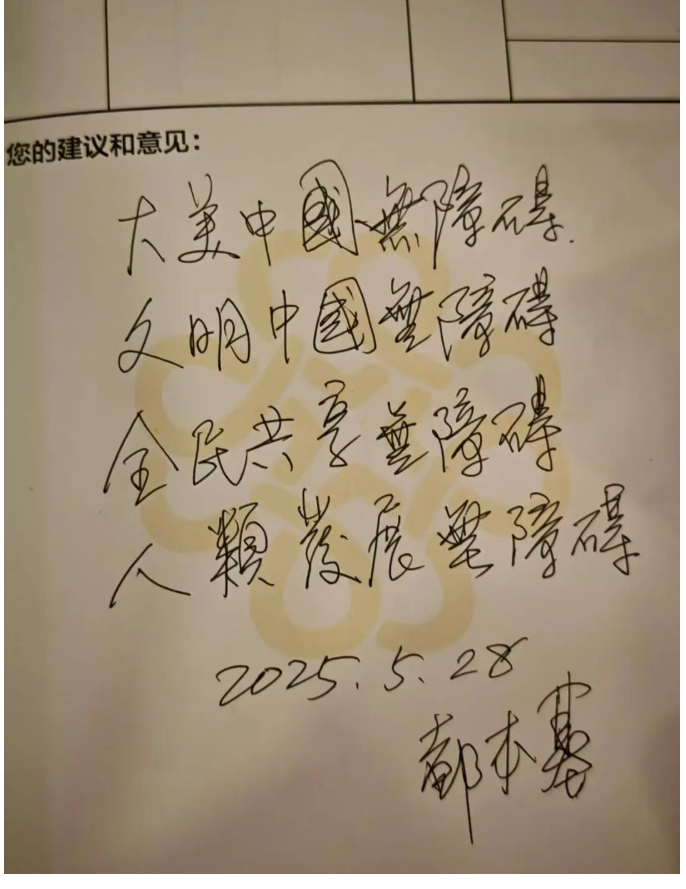 您的建议和意见：
大美中國無障碍.
文明中國無障碍
全民共享無障碍
人類發展無障碍
2025.5.28
都本基